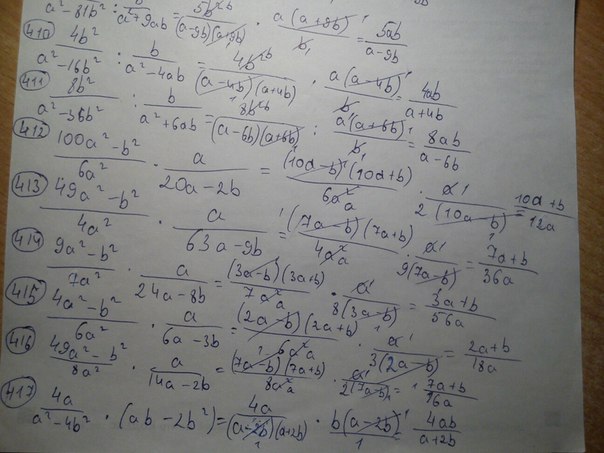 a² - 81b² : b / a² + 9ab = 5b² / (a-9b)(a+9b) · a(a+9b) / b = 5ab / a-9b
410 4b² / a² - 16b² : b / a² - 4ab = 4b² / (a-4b)(a+4b) · a(a-4b) / b = 4ab / a+4b
411 8b² / a² - 36b² : b / a² + 6ab = 8b² / (a-6b)(a+6b) : a(a+6b) / b = 8ab / a-6b
412 100a² - b² / 6a² · a / 20a - 2b = (10a-b)(10a+b) / 6a² · a / 2(10a-b) = 10a+b / 12a
413 49a² - b² / 4a² · a / 63a - 9b = (7a-b)(7a+b) / 4a² · a / 9(7a-b) = 7a+b / 36a
414 9a² - b² / 7a² · a / 24a - 8b = (3a-b)(3a+b) / 7a² · a / 8(3a-b) = 3a+b / 56a
415 4a² - b² / 6a² · a / 6a - 3b = (2a-b)(2a+b) / 6a² · a / 3(2a-b) = 2a+b / 18a
416 49a² - b² / 8a² · a / 14a - 2b = (7a-b)(7a+b) / 8a² · a / 2(7a-b) = 7a+b / 16a
417 4a / a² - 4b² · (ab - 2b²) = 4a / (a-2b)(a+2b) · b(a-2b) / 1 = 4ab / a+2b